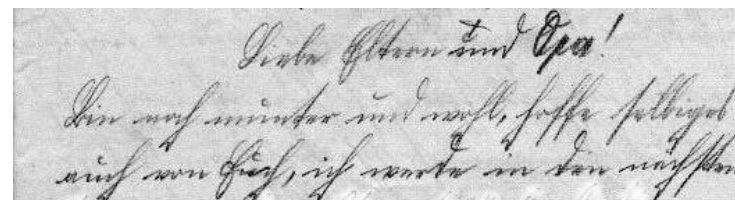 Liebe Eltern und Opa!
Bin noch munter und wohl, hoffe selbiges
auch von Euch, ich werde in den nächsten